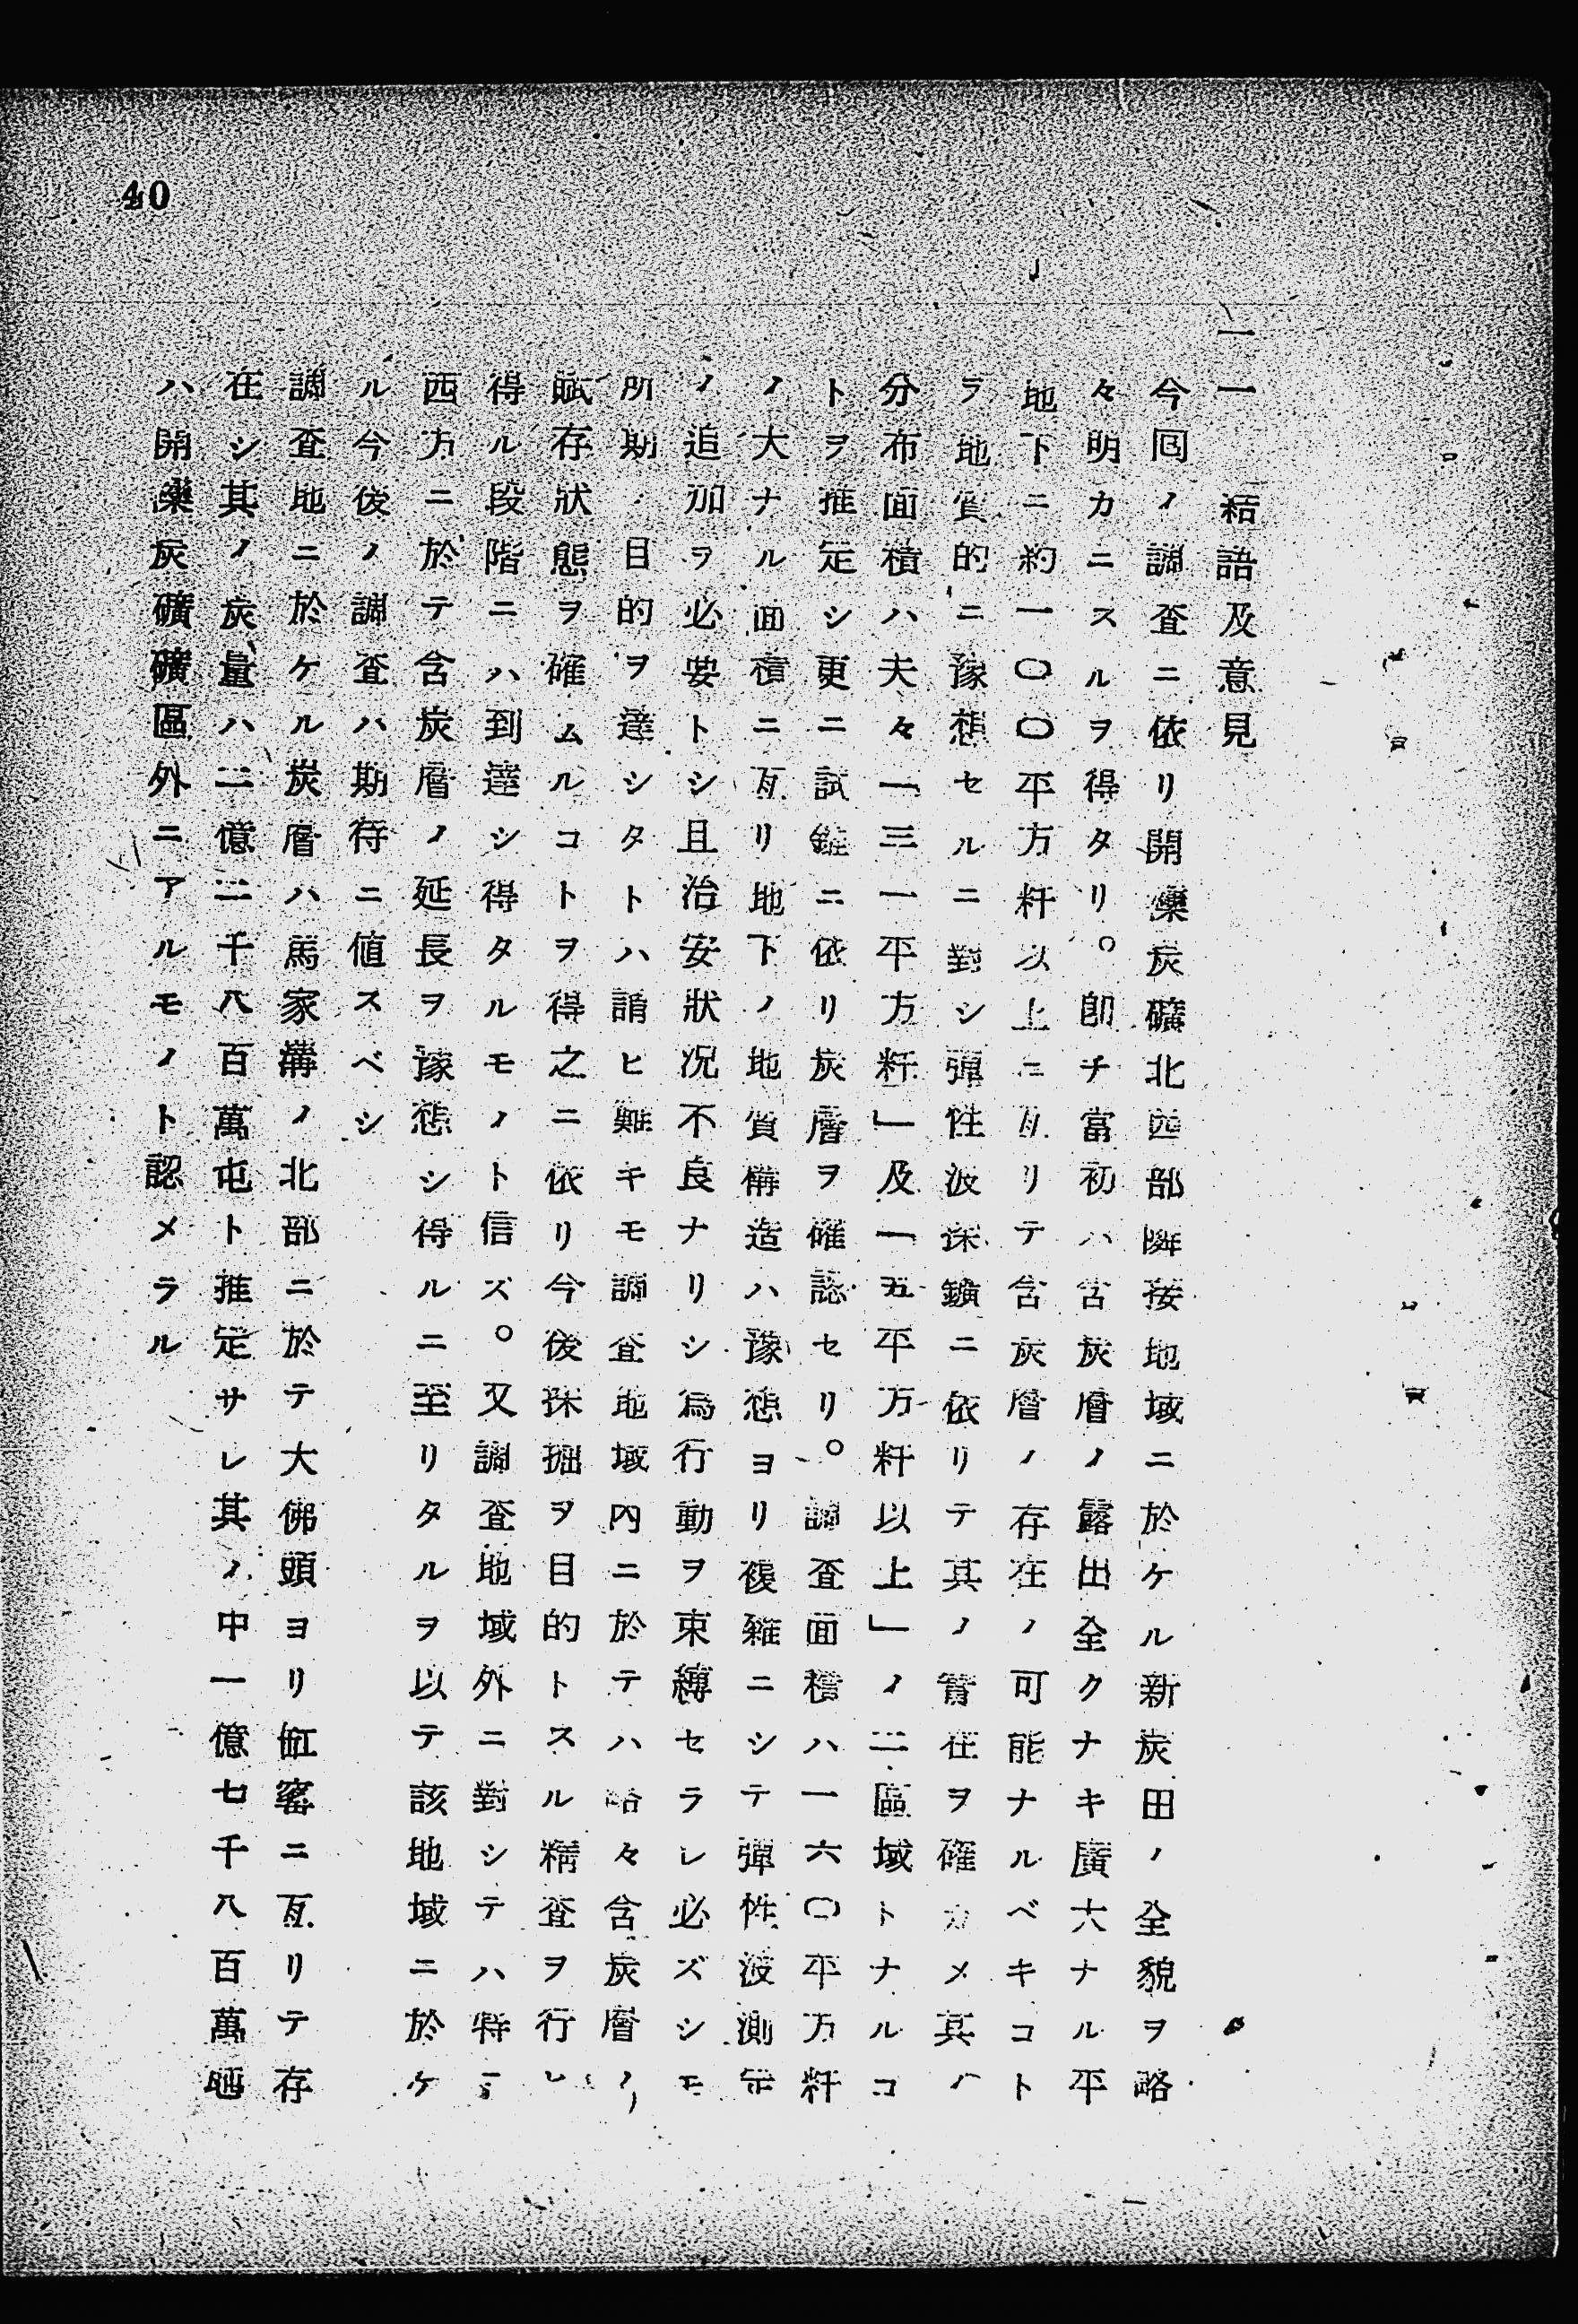 40
一一 結語及意見
今囘ノ調査ニ依リ開灤炭礦北西部隣接地域ニ於ケル新炭田ノ全貌ヲ略
々明カニスルヲ得タリ。卽チ當初ハ含炭層ノ露出全クナキ廣大ナル平
地下ニ約一〇〇平方粁以上ニ亙リテ含炭層ノ存在ノ可能ナルベキコト
ヲ地質的ニ豫想セルニ對シ彈性波探鑛ニ依リテ其ノ實在ヲ確カメ其ノ
分布面積ハ夫々「三一平方粁」及「五平方粁以上」ノ二區域トナルコ
トヲ推定シ更ニ試錐ニ依リ炭層ヲ確認セリ。調査面積ハ一六〇平方粁
ノ大ナル面積ニ亙リ地下ノ地質構造ハ豫想ヨリ複雜ニシテ彈性波測定
ノ追加ヲ必要トシ且治安狀況不良ナリシ爲行動ヲ束縛セラレ必ズシモ
所期ノ目的ヲ達シタトハ謂ヒ難キモ調査地域內ニ於テハ略々含炭層ノ
賦存狀態ヲ確ムルコトヲ得之ニ依リ今後採掘ヲ目的トスル精査ヲ行ヒ
得ル段階ニハ到達シ得タルモノト信ズ。又調査地域外ニ對シテハ特ニ
西方ニ於テ含炭層ノ延長ヲ豫想シ得ルニ至リタルヲ以テ該地域ニ於ケ
ル今後ノ調査ハ期待ニ値スベシ
調査地ニ於ケル炭層ハ馬家溝ノ北部ニ於テ大佛頭ヨリ缸窰ニ亙リテ存
在シ其ノ炭量ハ二億二千八百萬屯ト推定サレ其ノ中一億七千八百萬噸
ハ開灤炭礦礦區外ニアルモノト認メラル